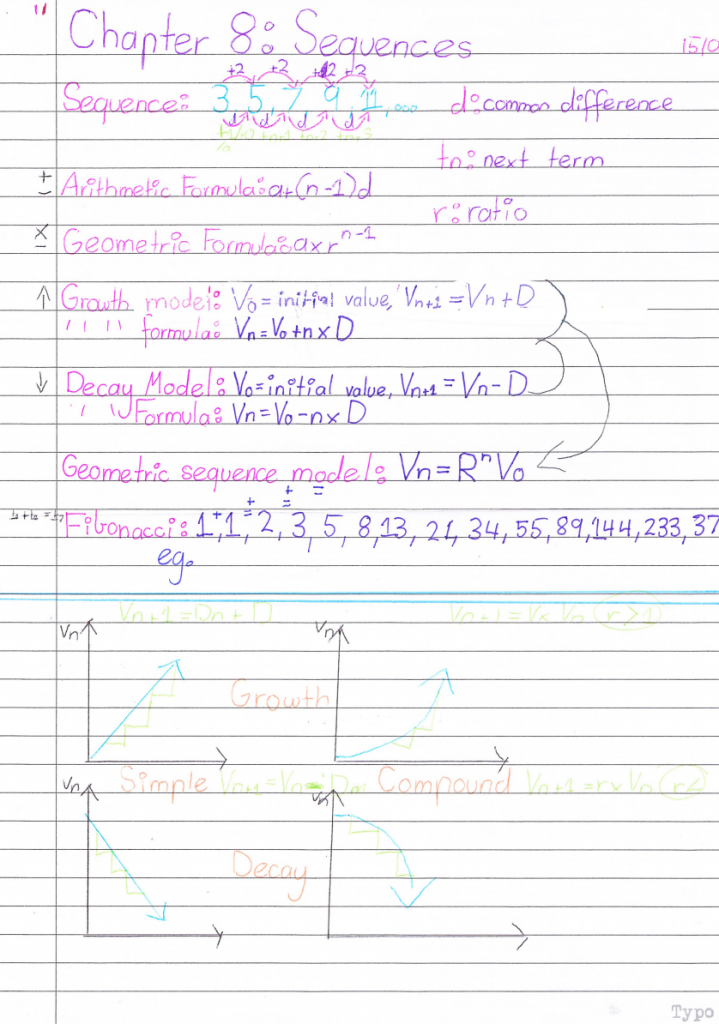 11
Chapter 8: Sequences
15/0
+2 +2 +2 +2
Sequence: 3, 5, 7, 9, 11, ... d: common difference
d d d d
tn: next term
+ - Arithmetic Formula: a+(n-1)d
r: ratio
× Geometric Formula: a×r^n-1
↑ Growth model: V₀ = initial value, Vn+1 = Vn + D
" " formula: Vn = V₀ + n × D
↓ Decay Model: V₀ = initial value, Vn+1 = Vn - D
" " Formula: Vn = V₀ - n × D
Geometric sequence model: Vn = RⁿV₀
+ = + = + =
Fibonacci: 1, 1, 2, 3, 5, 8, 13, 21, 34, 55, 89, 144, 233, 37
eg.
Vn+1 = Dn + D Vn+1 = V× Vn r>1
Vn Vn
Growth
Simple Compound Vn+1 = r× Vn r<
Vn Vn
Decay
Typo